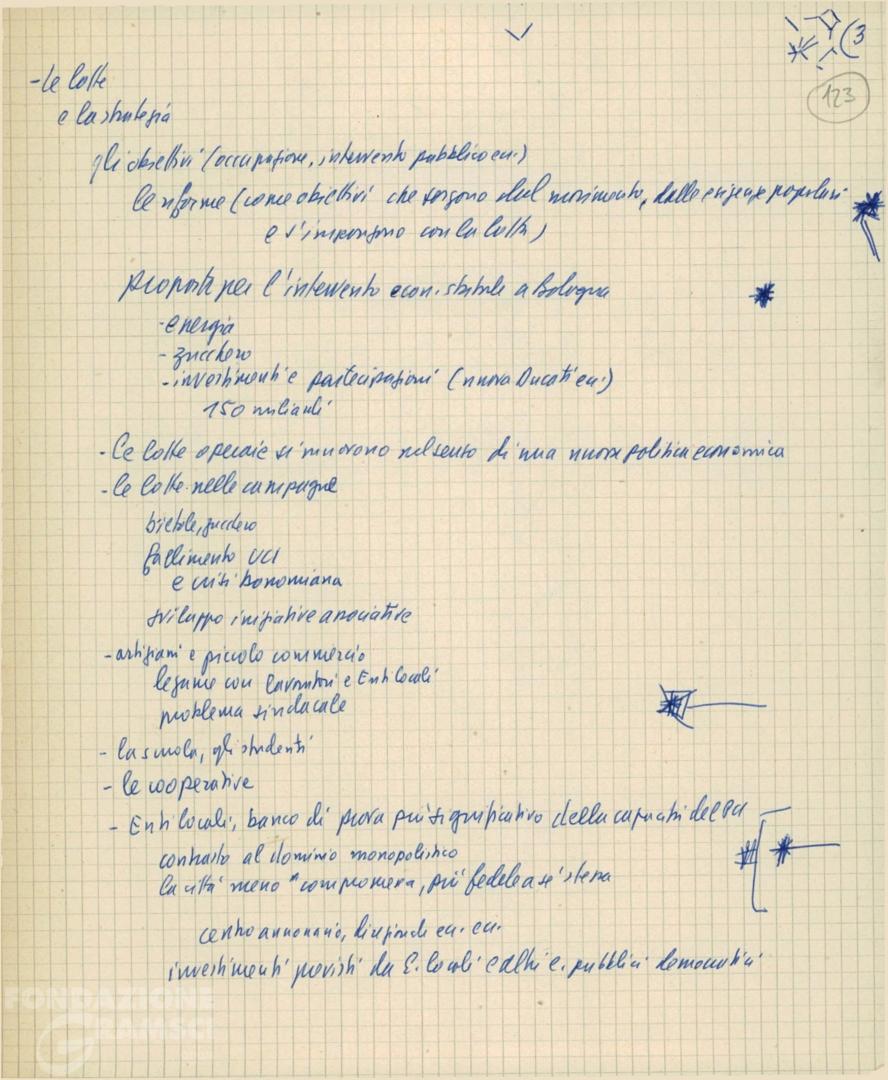 (3
123
- le lotte
e la strategia
gli obiettivi (occupazione, intervento pubblico ecc.)
le riforme (come obiettivi che sorgono dal movimento, dalle esigenze popolari
e s'impongono con la lotta)
proposte per l'intervento econ. statale a Bologna
- energia
- zucchero
- investimenti e partecipazioni (nuova Ducati ecc.)
150 miliardi
- le lotte operaie si muovono nel senso di una nuova politica economica
- le lotte nelle campagne
bietole, zucchero
fallimento UCI
e crisi bonomiana
sviluppo iniziative associative
- artigiani e piccolo commercio
legame con lavoratori e Enti locali
problema sindacale
- la scuola, gli studenti
- le cooperative
- Enti locali, banco di prova più significativo della capacità del PCI
contrasto al dominio monopolistico
la città meno "compromessa, più fedele a se' stessa
centro annonario, aziende ecc. ecc.
investimenti previsti da E. locali e altri e. pubblici democratici
FONDAZIONE
GRAMSCI